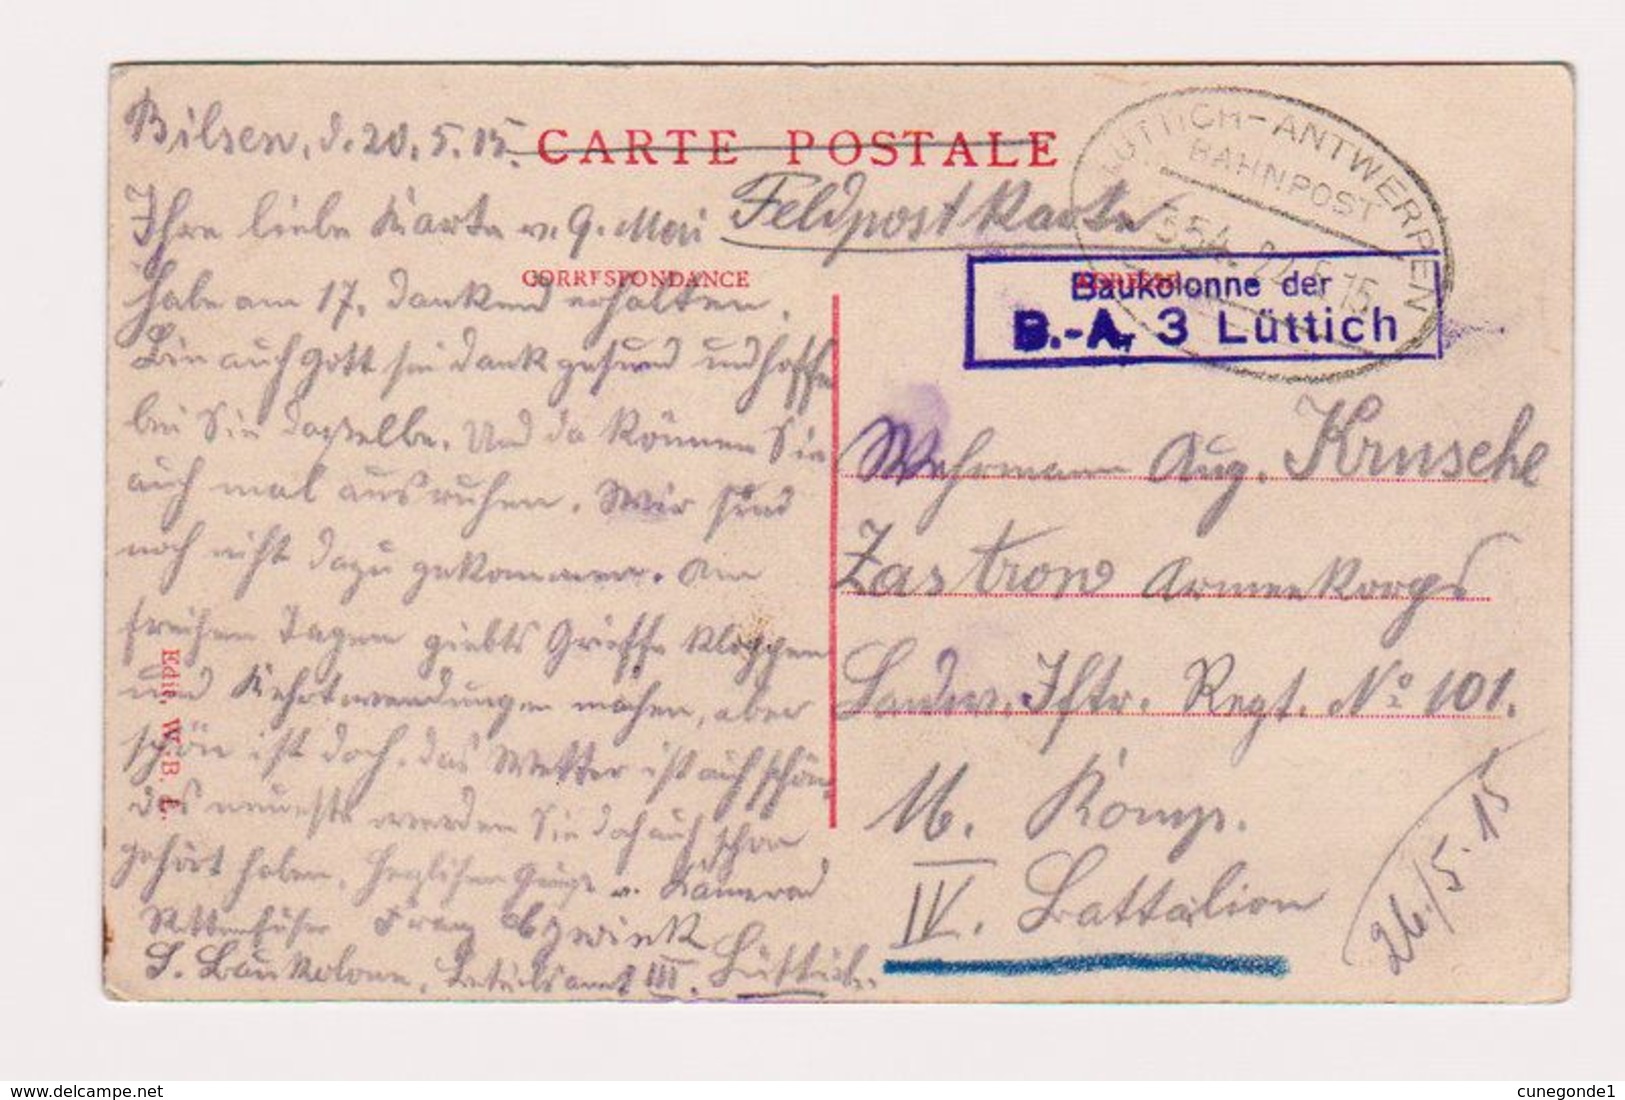 Bilsen, d. 20. 5. 15.
CARTE POSTALE
Feldpostkarte
CORRESPONDANCE
ADRESSE
Ihre liebe Karte v. 9. Mai
habe am 17. dankend erhalten.
Bin auch Gott sei dank gesund und hoffe
bei Sie dasselbe. Und da können Sie
auch mal ausruhen. Wir sind
noch nicht dazu gekommen. Am
freihen Tagen giebts Griffe kloppen
und Kehrtwendungen machen, aber
schön ist doch. das Wetter ist auch schön,
das neueste werden Sie doch auch schon
gehört haben. Herzlichen Grüße v. Kamerad
Franz
Baukolonne, III. Lüttich.
Edit. W. B. L.
LÜTTICH-ANTWERPEN
BAHNPOST
Baukolonne der
B.-A. 3 Lüttich
Wehrmann Aug. Krusche
Zastrow Armeekorps
Landw. Iftr. Regt. No 101.
16. Komp.
IV. Battalion
26/5.15
www.delcampe.net
cunegonde1